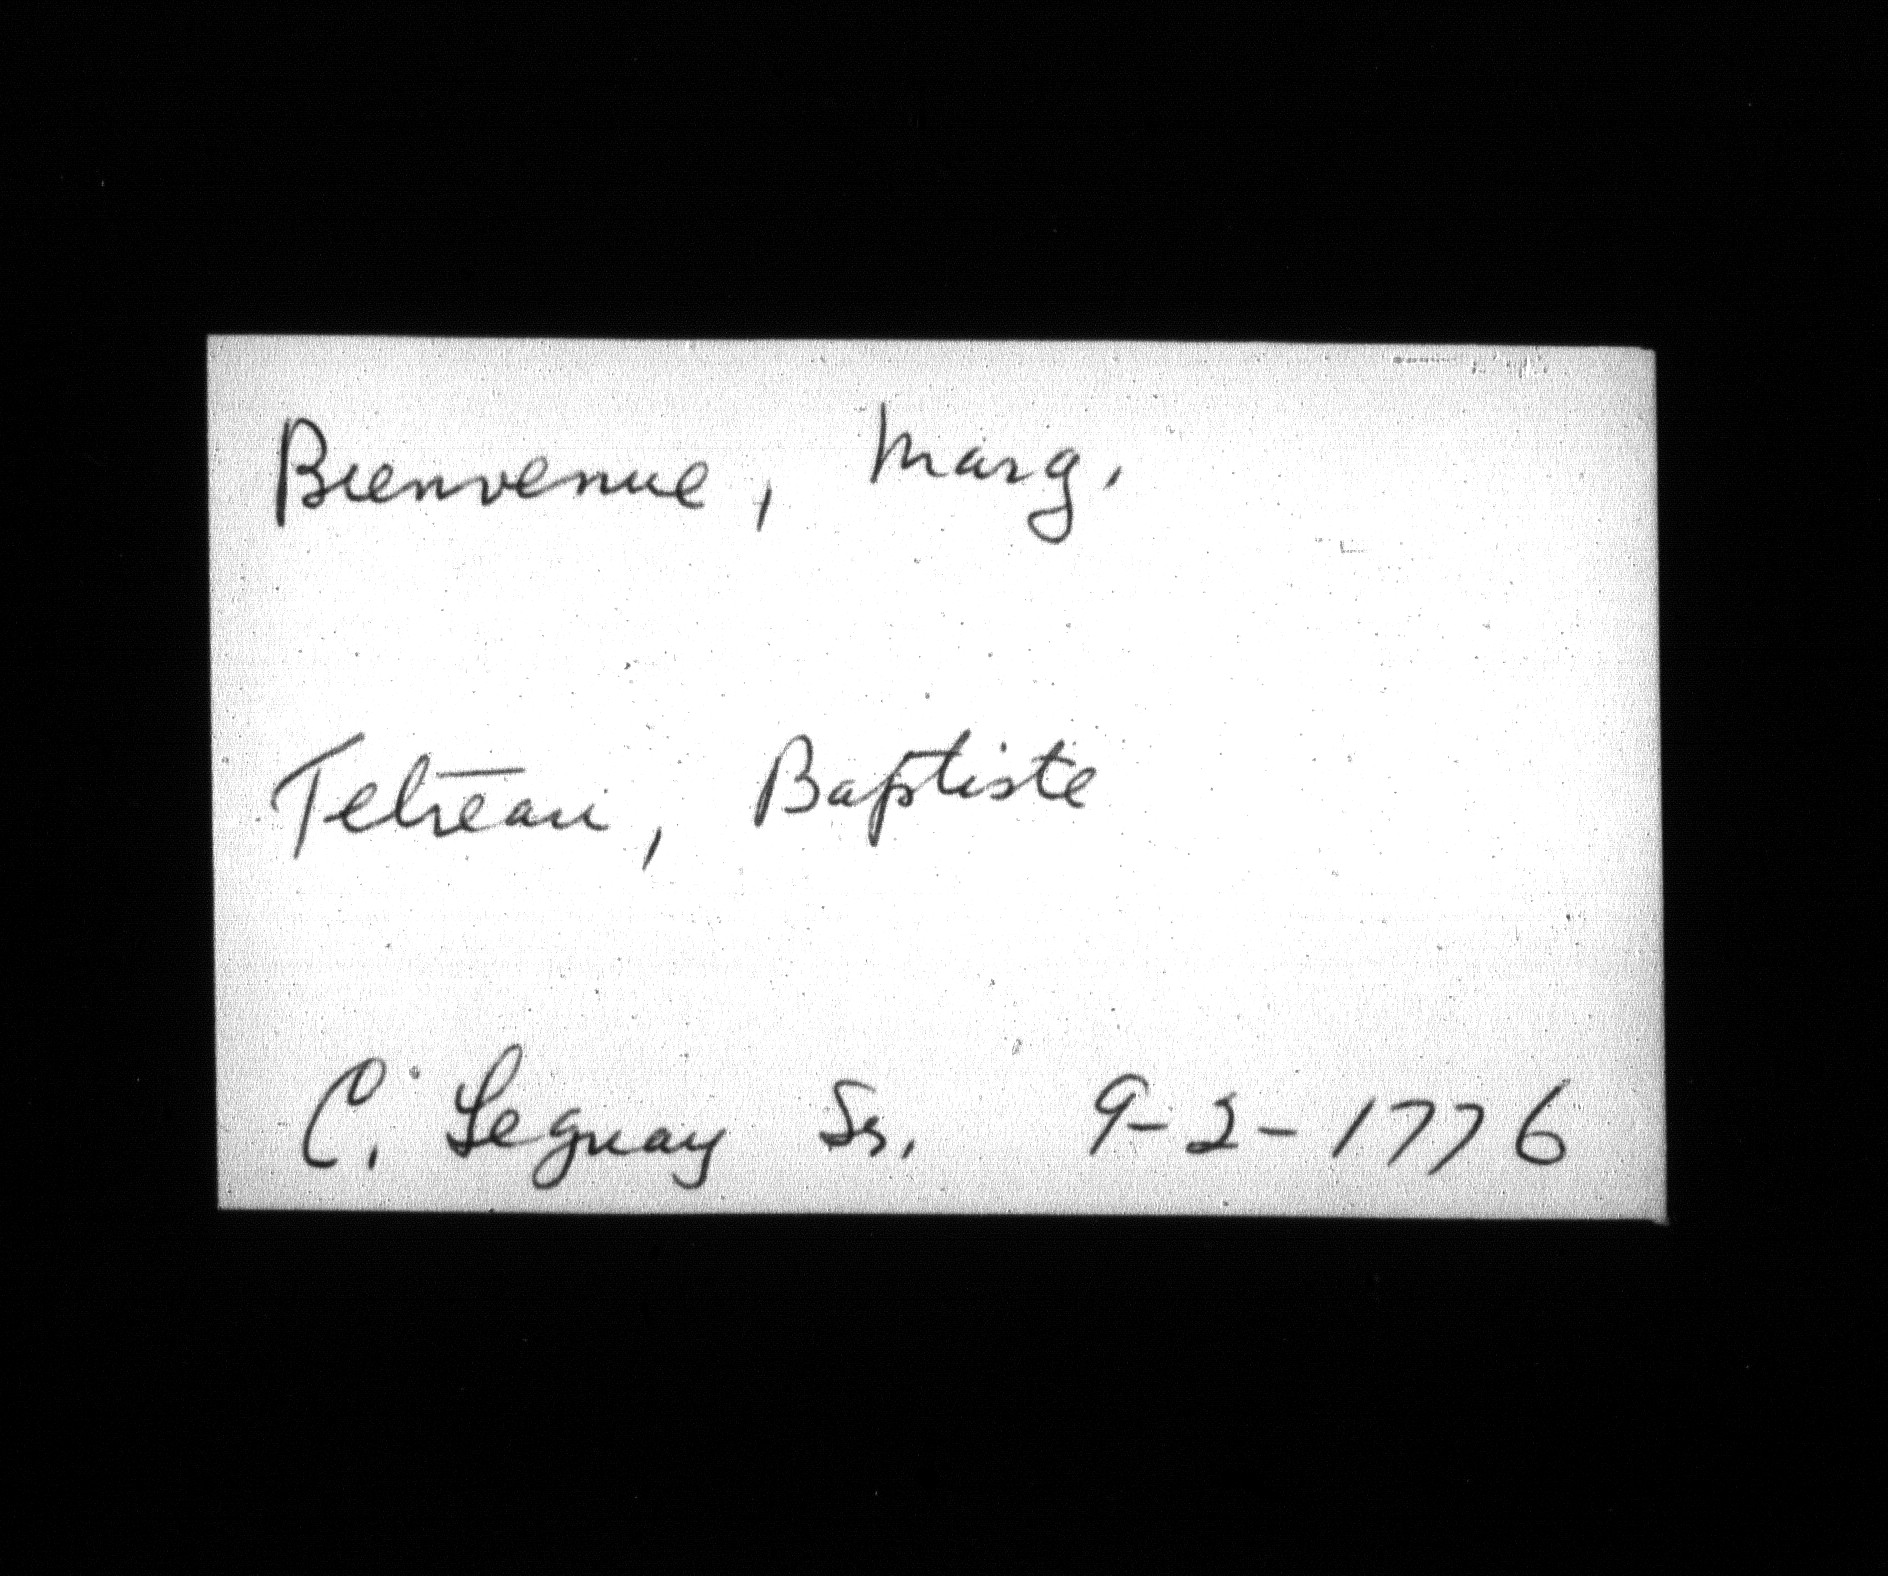 Bienvenue, Marg.
Tetreau, Baptiste
C. Leguay Sr. 9-2-1776